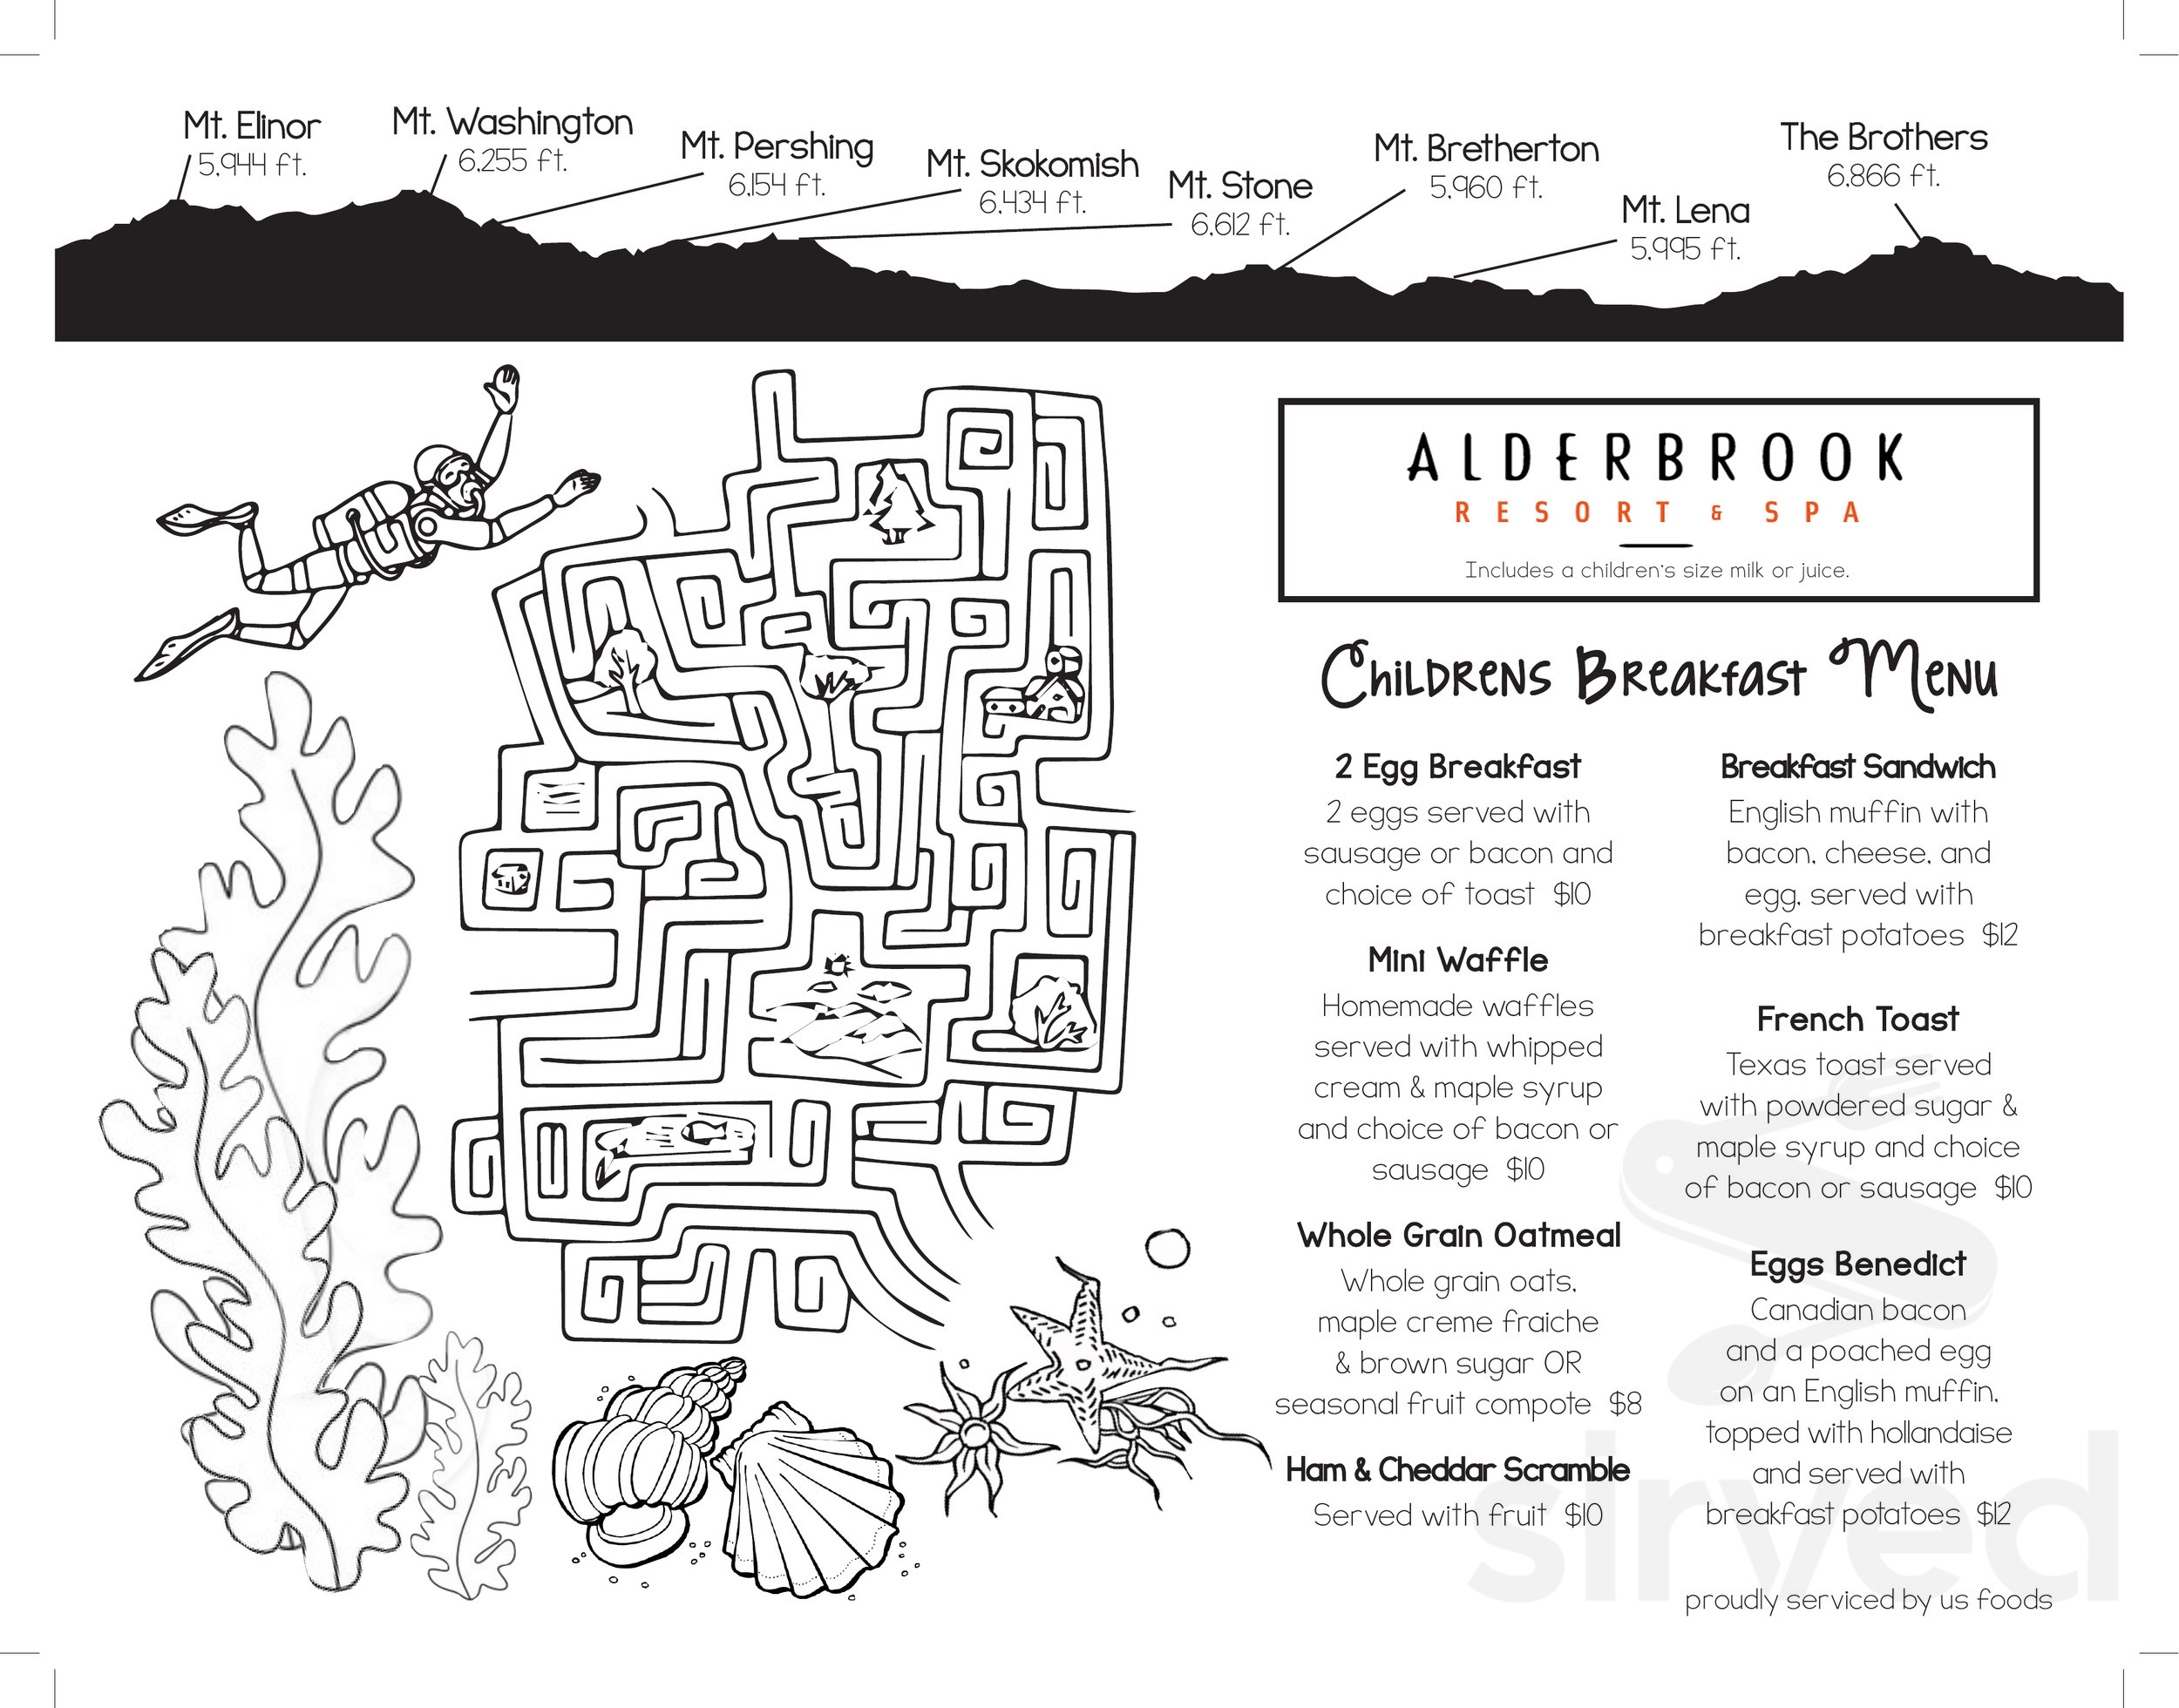 Mt. Elinor
5,944 ft.
Mt. Washington
6,255 ft.
Mt. Pershing
6,154 ft.
Mt. Skokomish
6,434 ft.
Mt. Stone
6,612 ft.
Mt. Bretherton
5,960 ft.
Mt. Lena
5,995 ft.
The Brothers
6,866 ft.
ALDERBROOK
RESORT & SPA
Includes a children's size milk or juice.
Childrens Breakfast Menu
2 Egg Breakfast
2 eggs served with
sausage or bacon and
choice of toast $10
Mini Waffle
Homemade waffles
served with whipped
cream & maple syrup
and choice of bacon or
sausage $10
Whole Grain Oatmeal
Whole grain oats,
maple creme fraiche
& brown sugar OR
seasonal fruit compote $8
Ham & Cheddar Scramble
Served with fruit $10
Breakfast Sandwich
English muffin with
bacon, cheese, and
egg, served with
breakfast potatoes $12
French Toast
Texas toast served
with powdered sugar &
maple syrup and choice
of bacon or sausage $10
Eggs Benedict
Canadian bacon
and a poached egg
on an English muffin,
topped with hollandaise
and served with
breakfast potatoes $12
proudly serviced by us foods
sirved